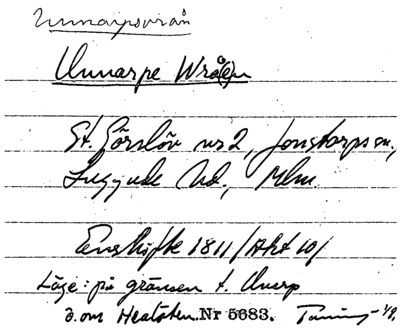 Unnarpsvrån
Unnarpe Wrå(e)n
St. Görslöv nr 2, Jonstorps sn.,
Luggude hd., Mlm.
Enskifte 1811/Akt 10/
Läge: på gränsen t. Unarp
ö. om Nr 5683.